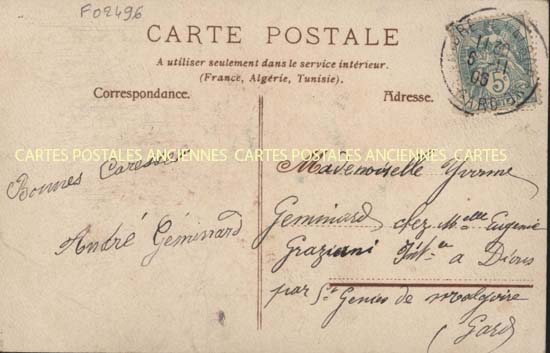 F02496
CARTE POSTALE
A utiliser seulement dans le service intérieur.
(France, Algérie, Tunisie).
Correspondance.
Adresse.
5
11
06
GARD
CARTES POSTALES ANCIENNES CARTES POSTALES ANCIENNES CARTES
Bonnes Caresses
André Géminard
Mademoiselle Yvonne
Geminard, chez Melle Eugenie
Graziani Int.ce a Dions
par St Genies de malgoire
(Gard)